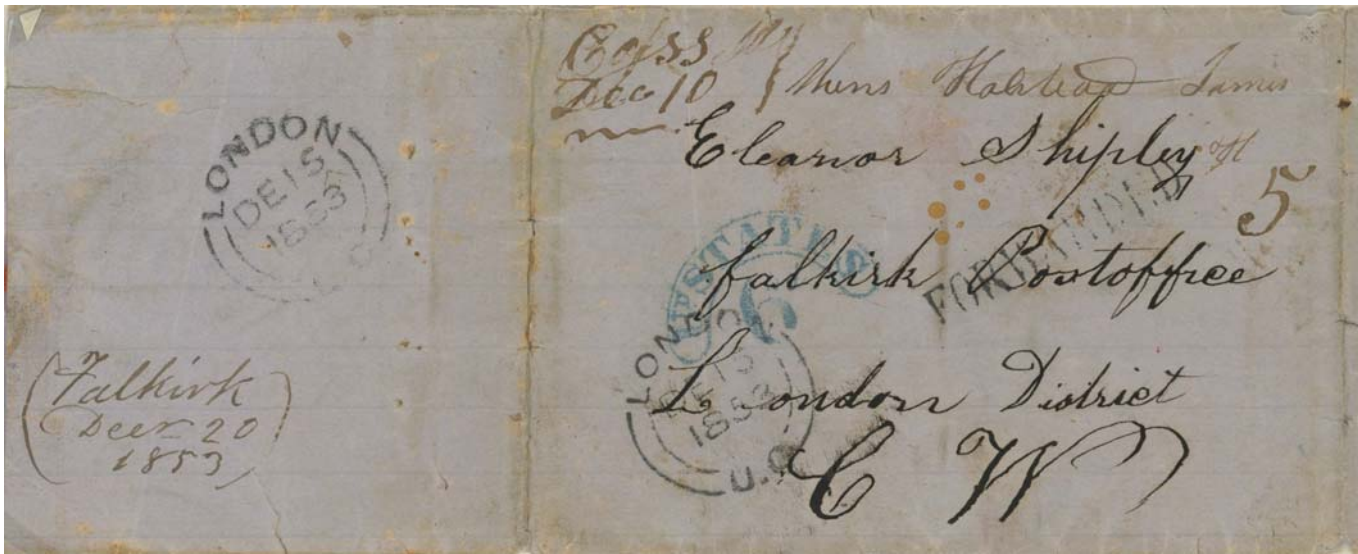 LONDON
DE 15
1853
Falkirk
Decr 20
1853
Dec 10
Halstead James
Eleanor Shipley
5
FORWARDED
STATES
6
falkirk Postoffice
LONDON
1853
U.C
London District
C W